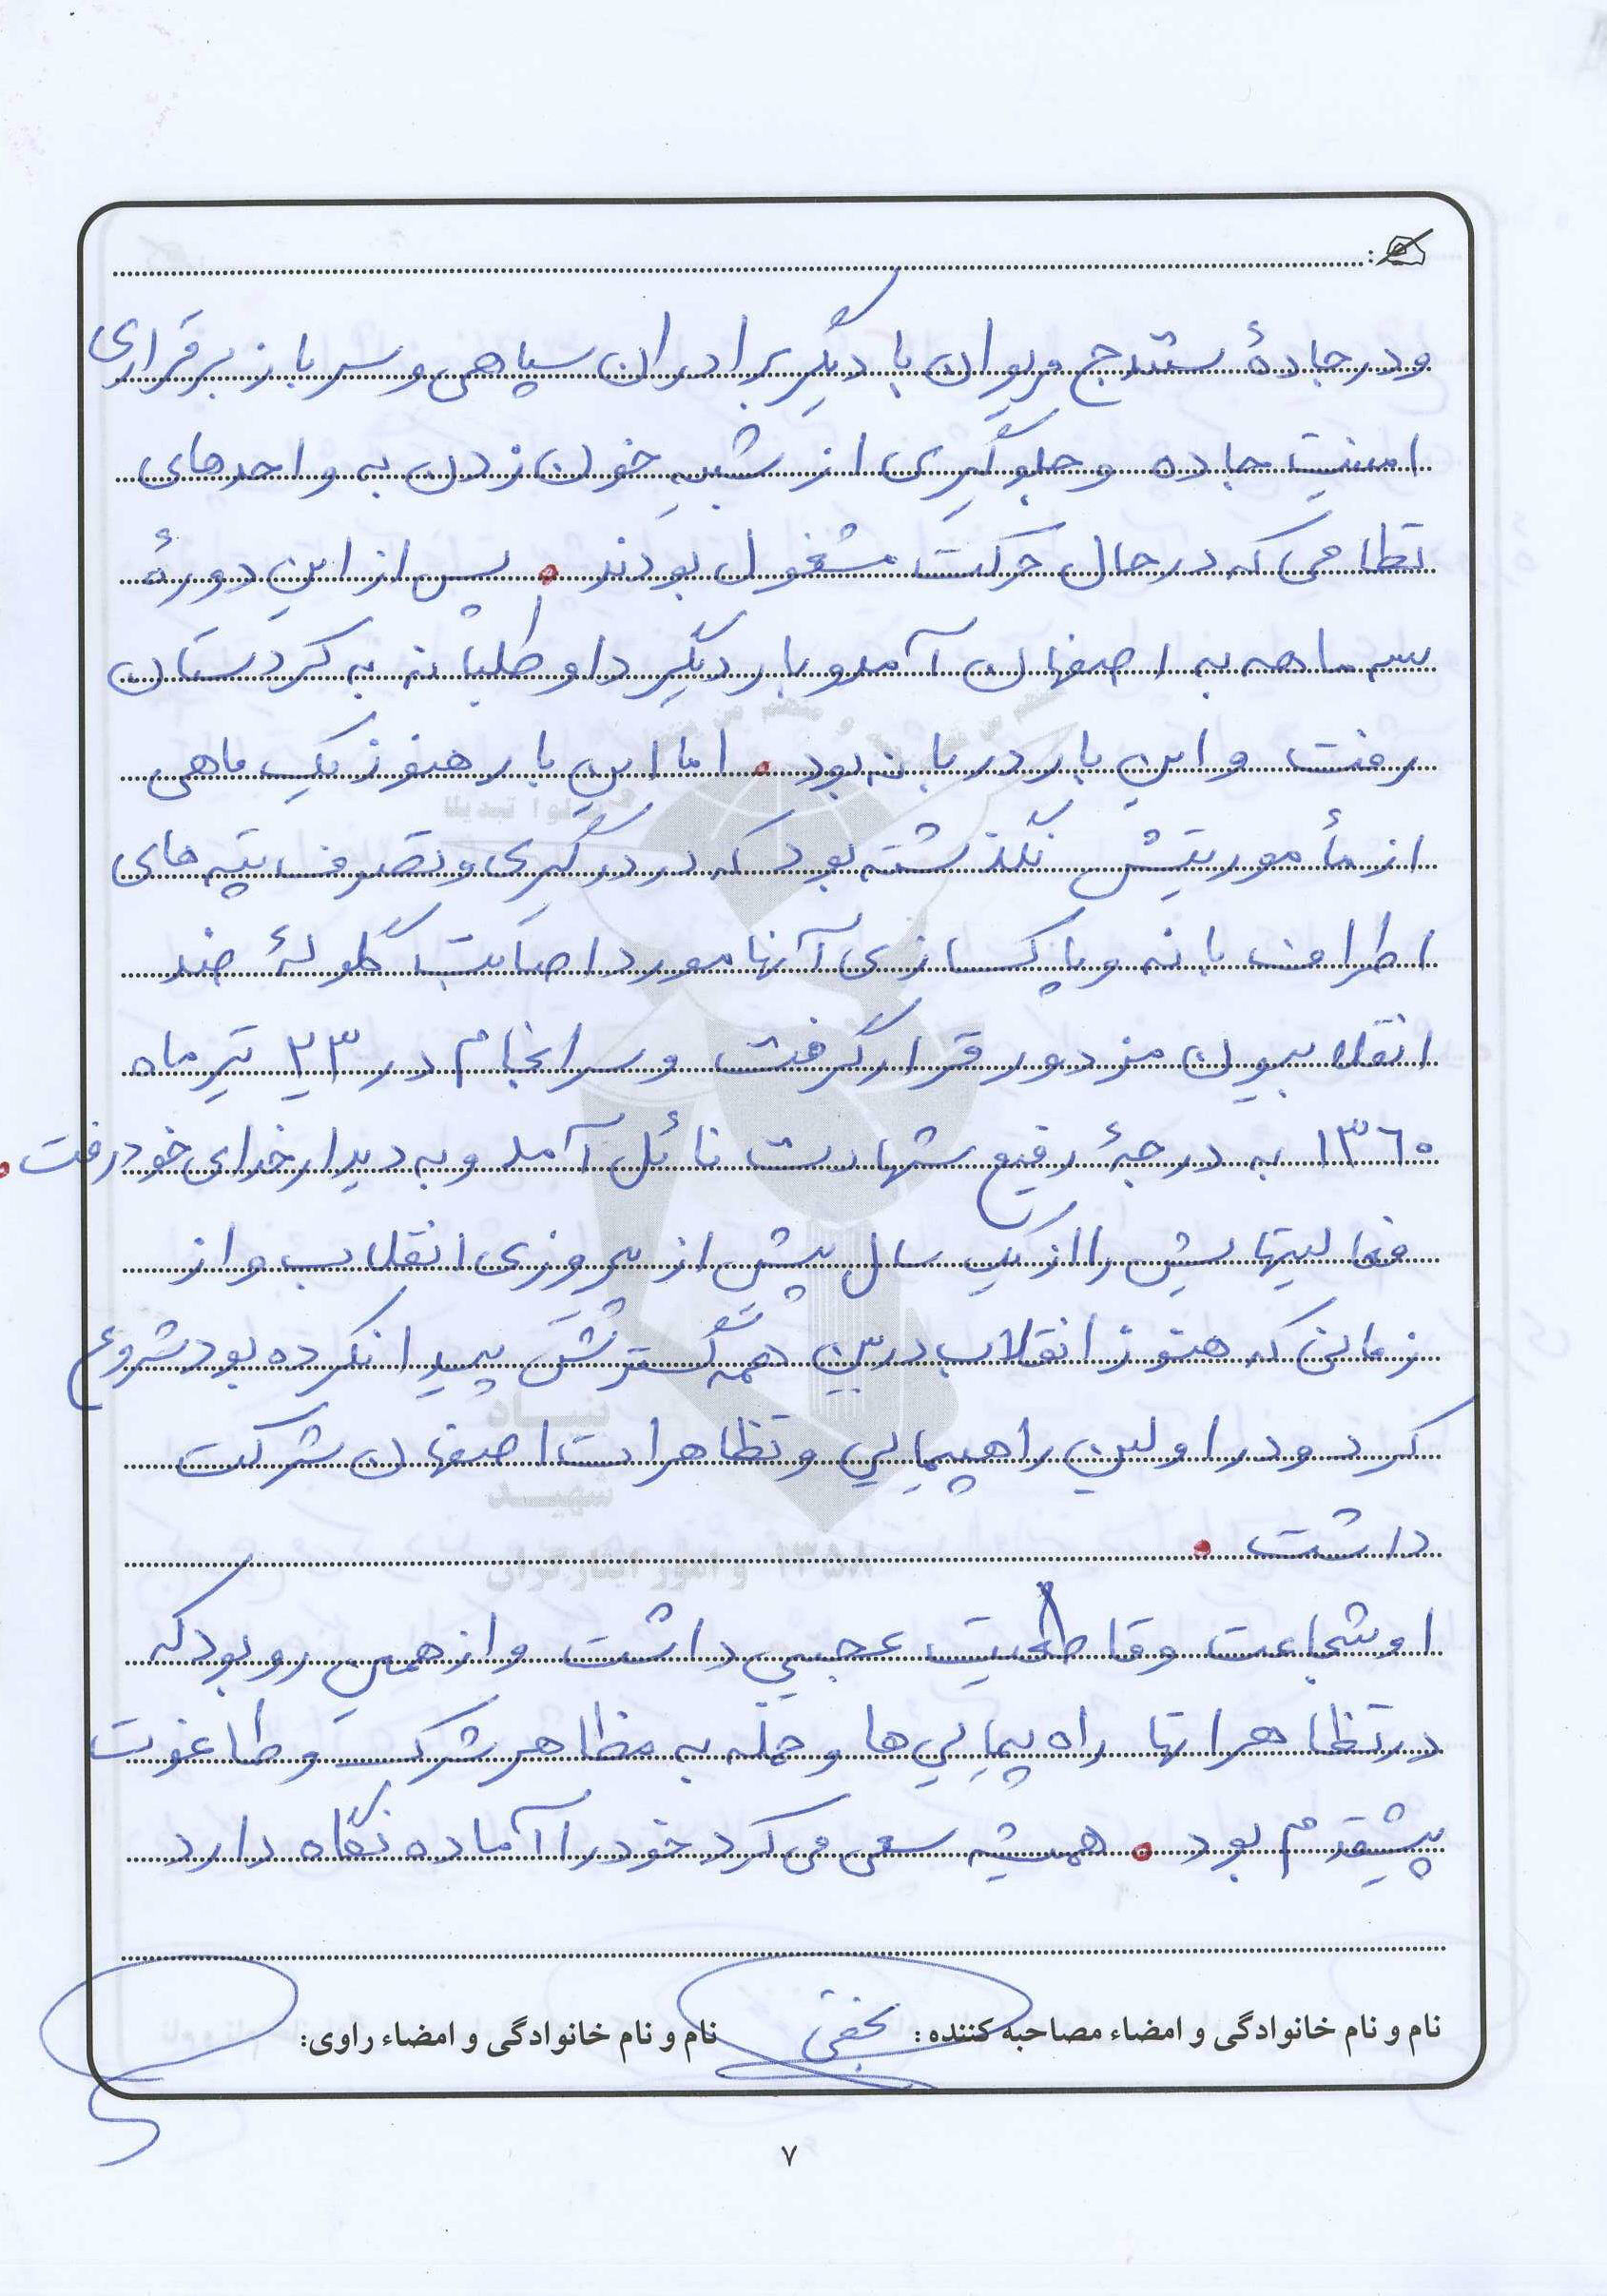 ودر جادهٔ سنندج مریوان با دیگر برادران سپاهی و سرباز برقراری
امنیت جاده وجلوگیری از شبیه خون زدن به واحدهای
نظامی که در حال حرکت مشغول بودند. پس از این دورهٔ
سه ماهه به اصفهان آمد و بار دیگر داوطلبانه به کردستان
رفت و این بار در بانه بود. اما این بار هنوز یک ماهی
از مأموریتش نگذشته بود که در درگیری و تصرف تپه های
اطراف بانه و پاکسازی آنها مورد اصابت گلولهٔ ضد
انقلابیون مزدور قرار گرفت و سرانجام در ۲۳ تیرماه
۱۳۶۰ به درجهٔ رفیع شهادت نائل آمد و به دیدار خدای خود رفت.
فعالیتهایش را از یک سال پیش از پیروزی انقلاب و از
زمانی که هنوز انقلاب در بین همه گسترش پیدا نکرده بود شروع
کرد و در اولین راهپیمایی و تظاهرات اصفهان شرکت
داشت.
او شجاعت و قاطعیت عجیبی داشت و از همین رو بود که
در تظاهراتها راه پیمایی ها و حمله به مظاهر شرک و طاغوت
پیشقدم بود. همیشه سعی می کرد خود را آماده نگاه دارد
نام و نام خانوادگی و امضاء مصاحبه کننده: نام و نام خانوادگی و امضاء راوی:
۷